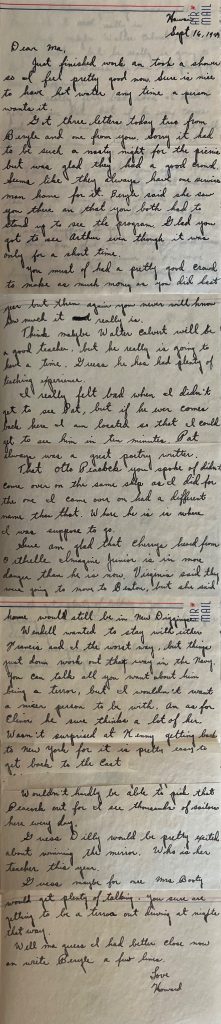 AIR
MAIL
Hawaii
Sept 16, 194
Dear Ma,
Just finished work an took a shower
so I feel pretty good now. Sure is nice
to have hot water any time a person
wants it.
Got three letters today two from
Beryle and one from you. Sorry it had
to be such a nasty night for the picnic
but was glad they had a good crowd.
Seems like they always have one service
man home for it. Beryle said she saw
you there an that you both had to
stand up to see the program. Glad you
got to see Arthur even though it was
only for a short time.
You must of had a pretty good crowd
to make as much money as you did last
year but then again you never will know
how much it really is.
Think maybe Walter Calvert will be
a good teacher, but he really is going to
have a time. Guess he has had plenty of
teaching experience.
I really felt bad when I didn't
get to see Pat, but if he ever comes
back here I am located so that I could
get to see him in ten minutes. Pat
always was a great poetry writer.
That Otto Peacock you spoke of didn't
come over on the same ship as I did for
the one I came over on had a different
name than that. Where he is is where
I was suppose to go.
Sure am glad that heard from
imagine Junior is in more
danger than he is now. Virginia said they
were going to move to Benton, but she said
AIR
MAIL
home would still be in New Diggings
Wendell wanted to stay with either
Francis and I the worst way, but things
just dont work out that way in the Navy.
You can talk all you want about him
being a terror, but I wouldn't want
a nicer person to be with. An as for
he sure thinks a lot of her.
Wasn't surprised at Kenny getting back
to New York for it is pretty easy to
get back to the East
Wouldn't hardly be able to pick that
Peacock out for I see thousands of sailors
here every day.
Guess Dilly would be pretty excited
about winning the mirror. Who is her
teacher this year.
Guess maybe for one Mrs Booty
would get plenty of talking. You sure are
getting to be a terror out driving at nights
that way.
Well Ma guess I had better close now
an write Beryle a few lines.
Love
Howard